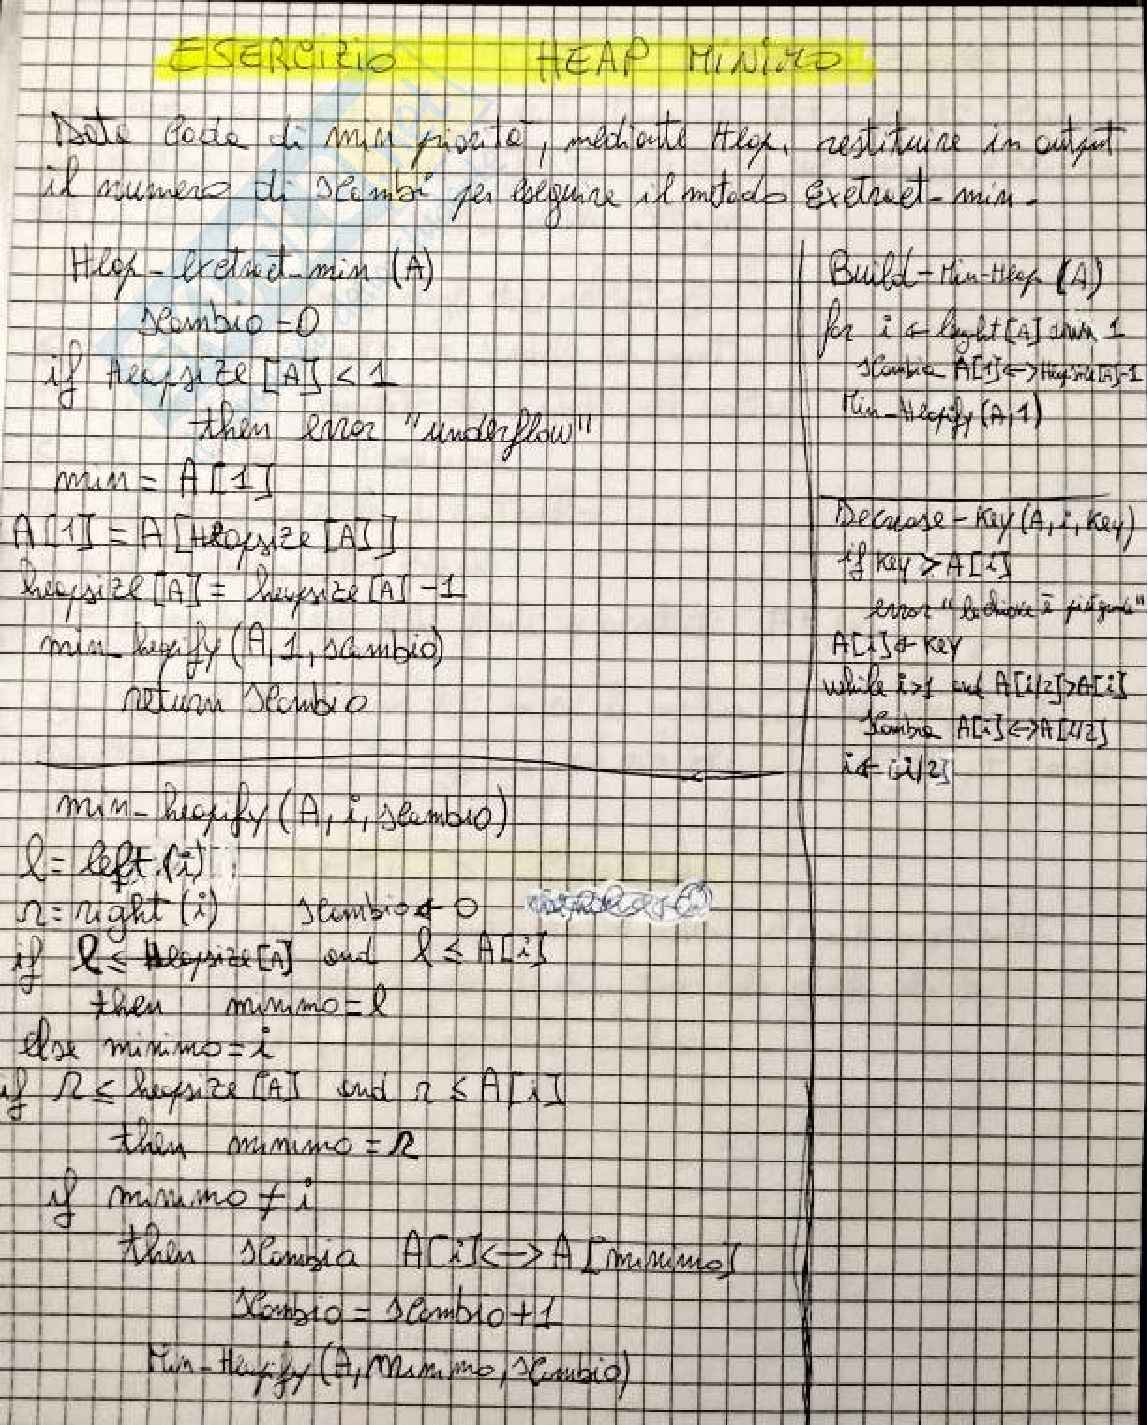 ESERCIZIO HEAP MINIMO
Data Coda di min priorità, mediante Heap, restituire in output
il numero di scambi per eseguire il metodo Exetract-min.
Heap-Exctract-min (A)
scambio = 0
if Heapsize [A] < 1
then error "underflow"
min = A[1]
A[1] = A[Heapsize[A]]
heapsize[A] = heapsize[A] -1
min_heapify(A,1,scambio)
return scambio
min-heapify(A,i,scambio)
l = left(i)
r = right(i) scambio ← 0
if l ≤ Heapsize[A] and l ≤ A[i]
then minimo = l
else minimo = i
if r ≤ heapsize[A] and r ≤ A[i]
then minimo = r
if minimo ≠ i
then scambia A[i] <-> A[minimo]
scambio = scambio + 1
Min-Heapify(A, minimo, scambio)
Build-Min-Heap (A)
for i ← leght[A] down 1
scambia A[1] <-> Heapsize[A]-1
Min-Heapify(A,1)
Decrease-Key(A,i,Key)
if Key > A[i]
error "la chiave è più grande"
A[i] ← Key
while i>1 and A[i/2]>A[i]
scambia A[i] <-> A[i/2]
i ← [i/2]